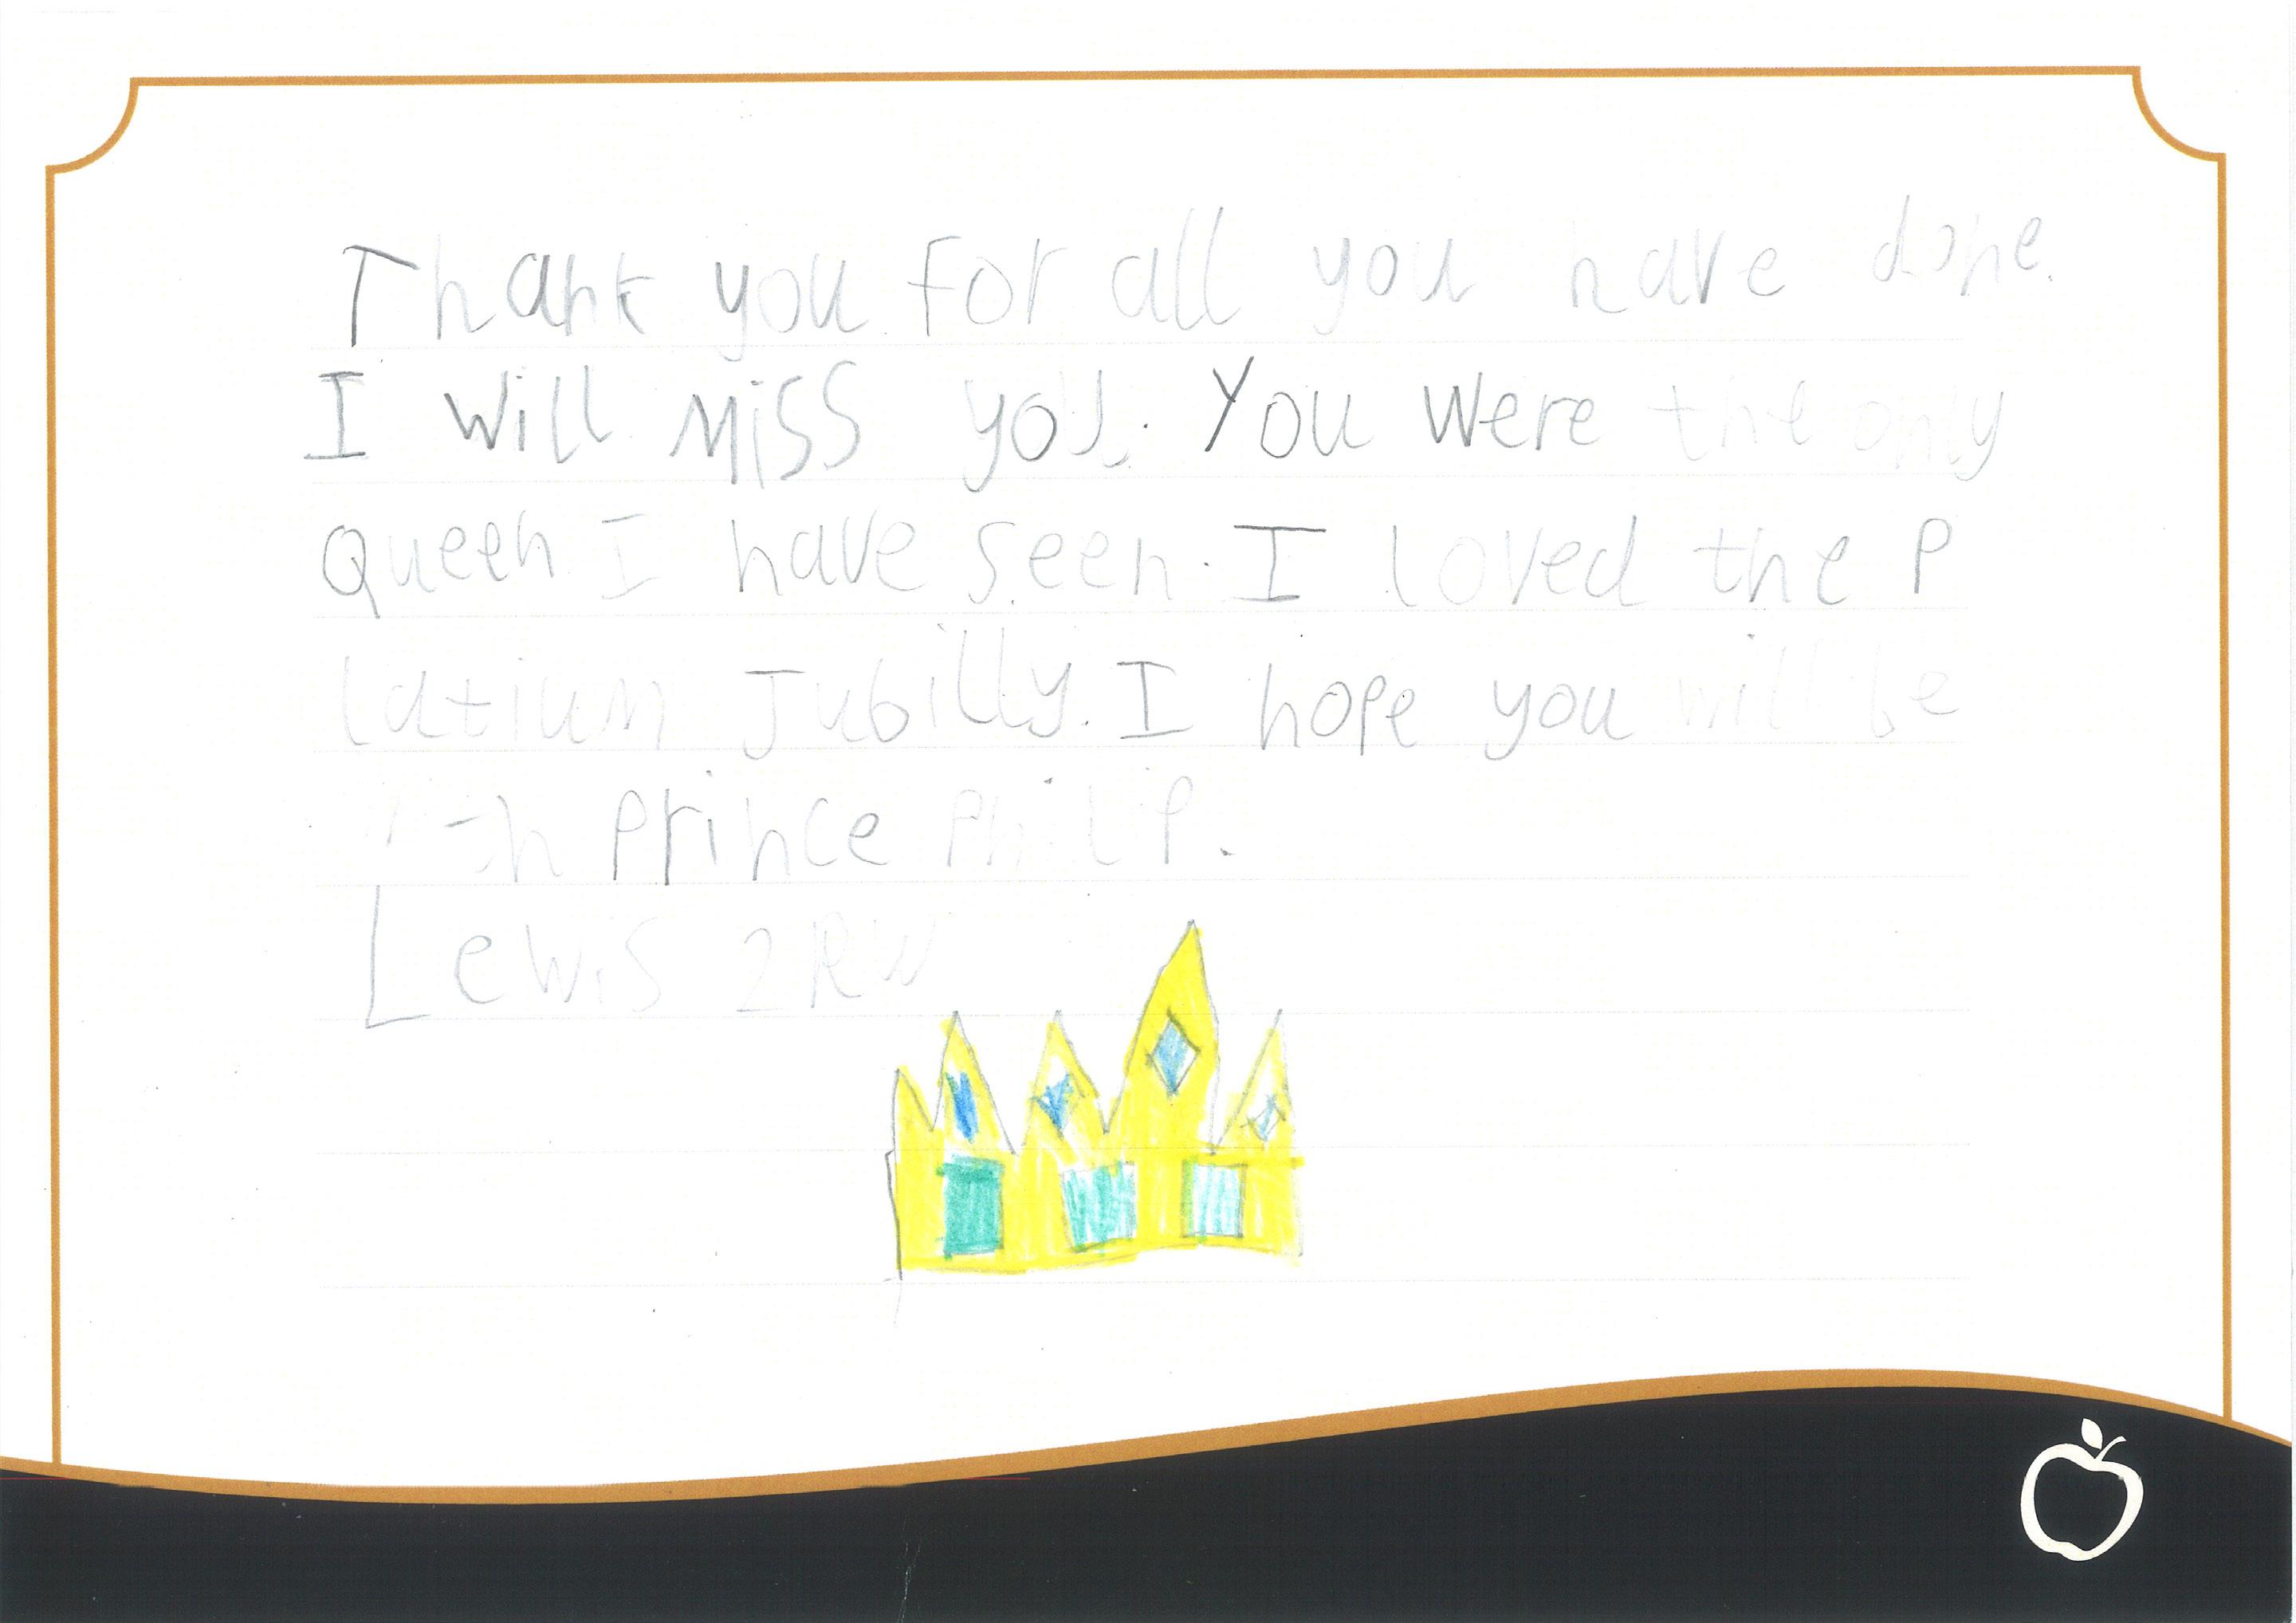 Thank you for all you have done.
I will miss you. You were the only
Queen I have seen. I loved the P
latium Jubilly. I hope you will be
Prince Philip.
Lewis 2RW